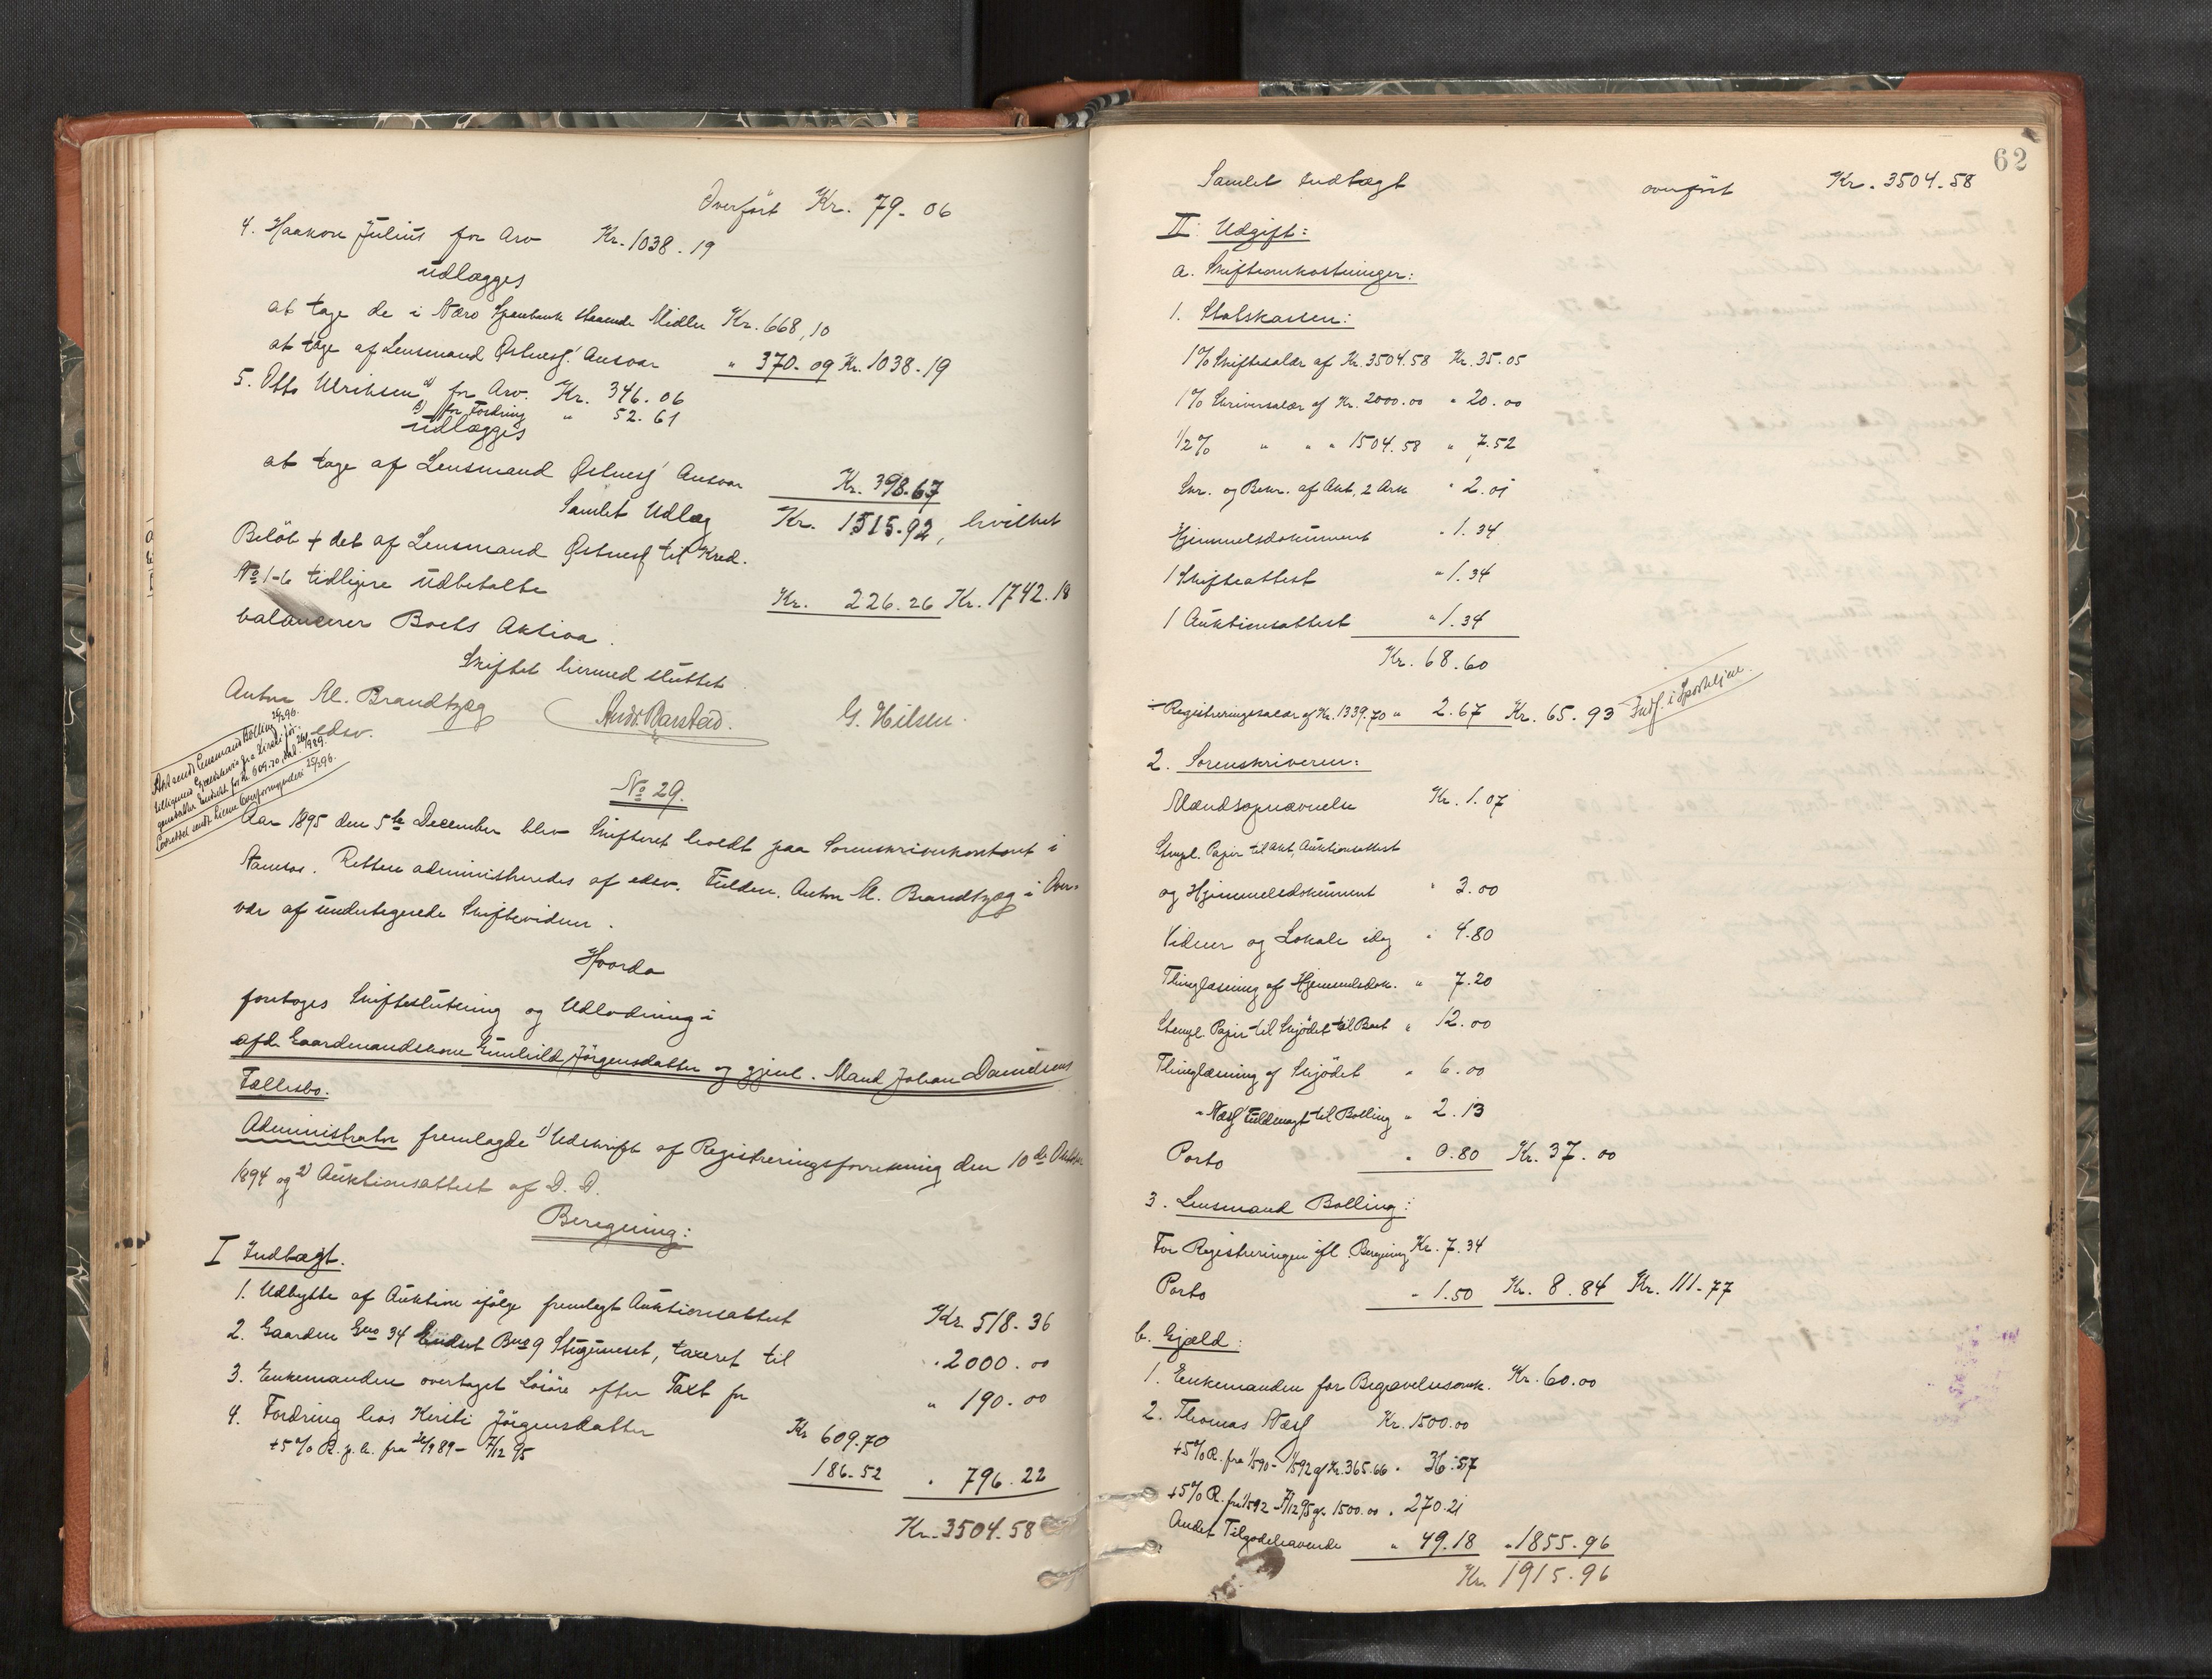 Overført Kr. 79.06
4. Haakon Julius for Arv Kr. 1038.19
udlægges
at tage de i Nærø Sparebank staaende Midler Kr. 668,10
at tage af Lensmand Østnesf' Ansvar " 370.09 Kr. 1038.19
5. Otto Ulriksen a) for Arv. Kr. 346.06
b) for Fordring " 52.61
udlægges
at tage af Lensmand Østnesf' Ansvar Kr. 398.67
Samlet Udlæg Kr. 1515.92, hvilket
Beløb + det af Lensmand Østnesf til Kred.
No 1-6 tidligere udbetalte Kr. 226.26 Kr. 1742.18
balancerer Boets Aktiva.
Skiftet hermed sluttet
Anton M. Brandtzæg
edsv.
Ands. Barstad. G. Nilsen.
No 29.
Aar 1895 den 5te December blev Skifteret holdt paa Sorenskriverkontoret i
Namsos. Retten administreredes af edsv. Fuldm. Anton M. Brandtzæg i Over-
vær af undertegnede Skiftevidner.
Hvorda
foretoges Skifteslutning og Udlodning i
afd. Gaardmandskone Gunhild Jörgensdatter og gjenl. Mand Johan Danielsens
Fællesbo.
Administrator fremlagde 1) Udskrift af Registreringsforretning den 10de Oktober
1894 og 2) Auktionsattest af D. D.
Beregning:
I Indtægt.
1. Udbytte af Auktion ifølge fremlagt Auktionsattest Kr. 518.36
2. Gaarden Gno 34 Bno 9 taxeret til " 2000.00
3. Enkemanden overtaget Løsøre efter Taxt for " 190.00
4. Fordring hos Kirsti Jörgensdatter Kr 609.70
+ 5 % R. p. a. fra 26/9 89 - 5/12 95 186.52 " 796.22
Kr. 3504.58
62
Samlet Indtægt overført Kr. 3504.58
II Udgift:
a. Skifteomkostninger:
1. Statskassen:
1 % Skiftesalær af Kr. 3504.58 Kr. 35.05
1 % Skriversalær af Kr. 2000.00 " 20.00
1/2 % " " " 1504.58 " 7.52
Skr. og Bekr. af Akt, 2 Ark " 2.01
Hjemmelsdokument " 1.34
1 Skifteattest " 1.34
1 Auktionsattest " 1.34
Kr. 68.60
÷ Registreringssalær af Kr. 1339.70 " 2.67 Kr. 65.93 Indf. i Sporteljour.
2. Sorenskriveren:
Mændsopnævnelse Kr. 1.07
Stempl. Papir til Akt, Auktionsattest
og Hjemmelsdokument " 3.00
Vidner og Lokale idag " 4.80
Thinglæsning af Hjemmelsdok. " 7.20
Stempl. Papir til Skjødet til Boet " 12.00
Thinglæsning af Skjødet " 6.00
" Næsf' Fuldmagt til Bolling " 2.13
Porto " 0.80 Kr. 37.00
3. Lensmand Bolling:
For Registreringen ifl. Beregning Kr. 7.34
Porto " 1.50 Kr. 8.84 Kr. 111.77
b. Gjæld:
1. Enkemanden for Begravelsesomk. Kr. 60.00
2. Thomas Næsf Kr. 1500.00
+ 5 % R. fra 1/5 90 - 1/5 92 af Kr. 365.66 " 36.57
+ 5 % R. fra 1/5 92 - 5/12 95 af 1500.00 " 270.21
Andet Tilgodehavende " 49.18 " 1855.96
Kr. 1915.96